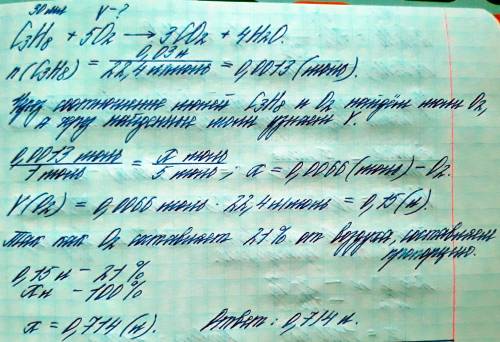 30 мл V - ?
C3H8 + 5O2 → 3CO2 + 4H2O.
n(C3H8) = 0,03 л / 22,4 л/моль = 0,0013 (моль).
Чрез соотношение молей C3H8 и O2 найдём моли O2,
а чрез найденные моли узнаем V.
0,0013 моль / 1 моль = x моль / 5 моль ; x = 0,0066 (моль) - O2.
V(O2) = 0,0066 моль · 22,4 л/моль = 0,15 (л).
Так как O2 составляет 21% от воздуха, составляем
пропорцию.
0,15 л - 21 %
x л - 100 %
x = 0,714 (л). Ответ : 0,714 л.